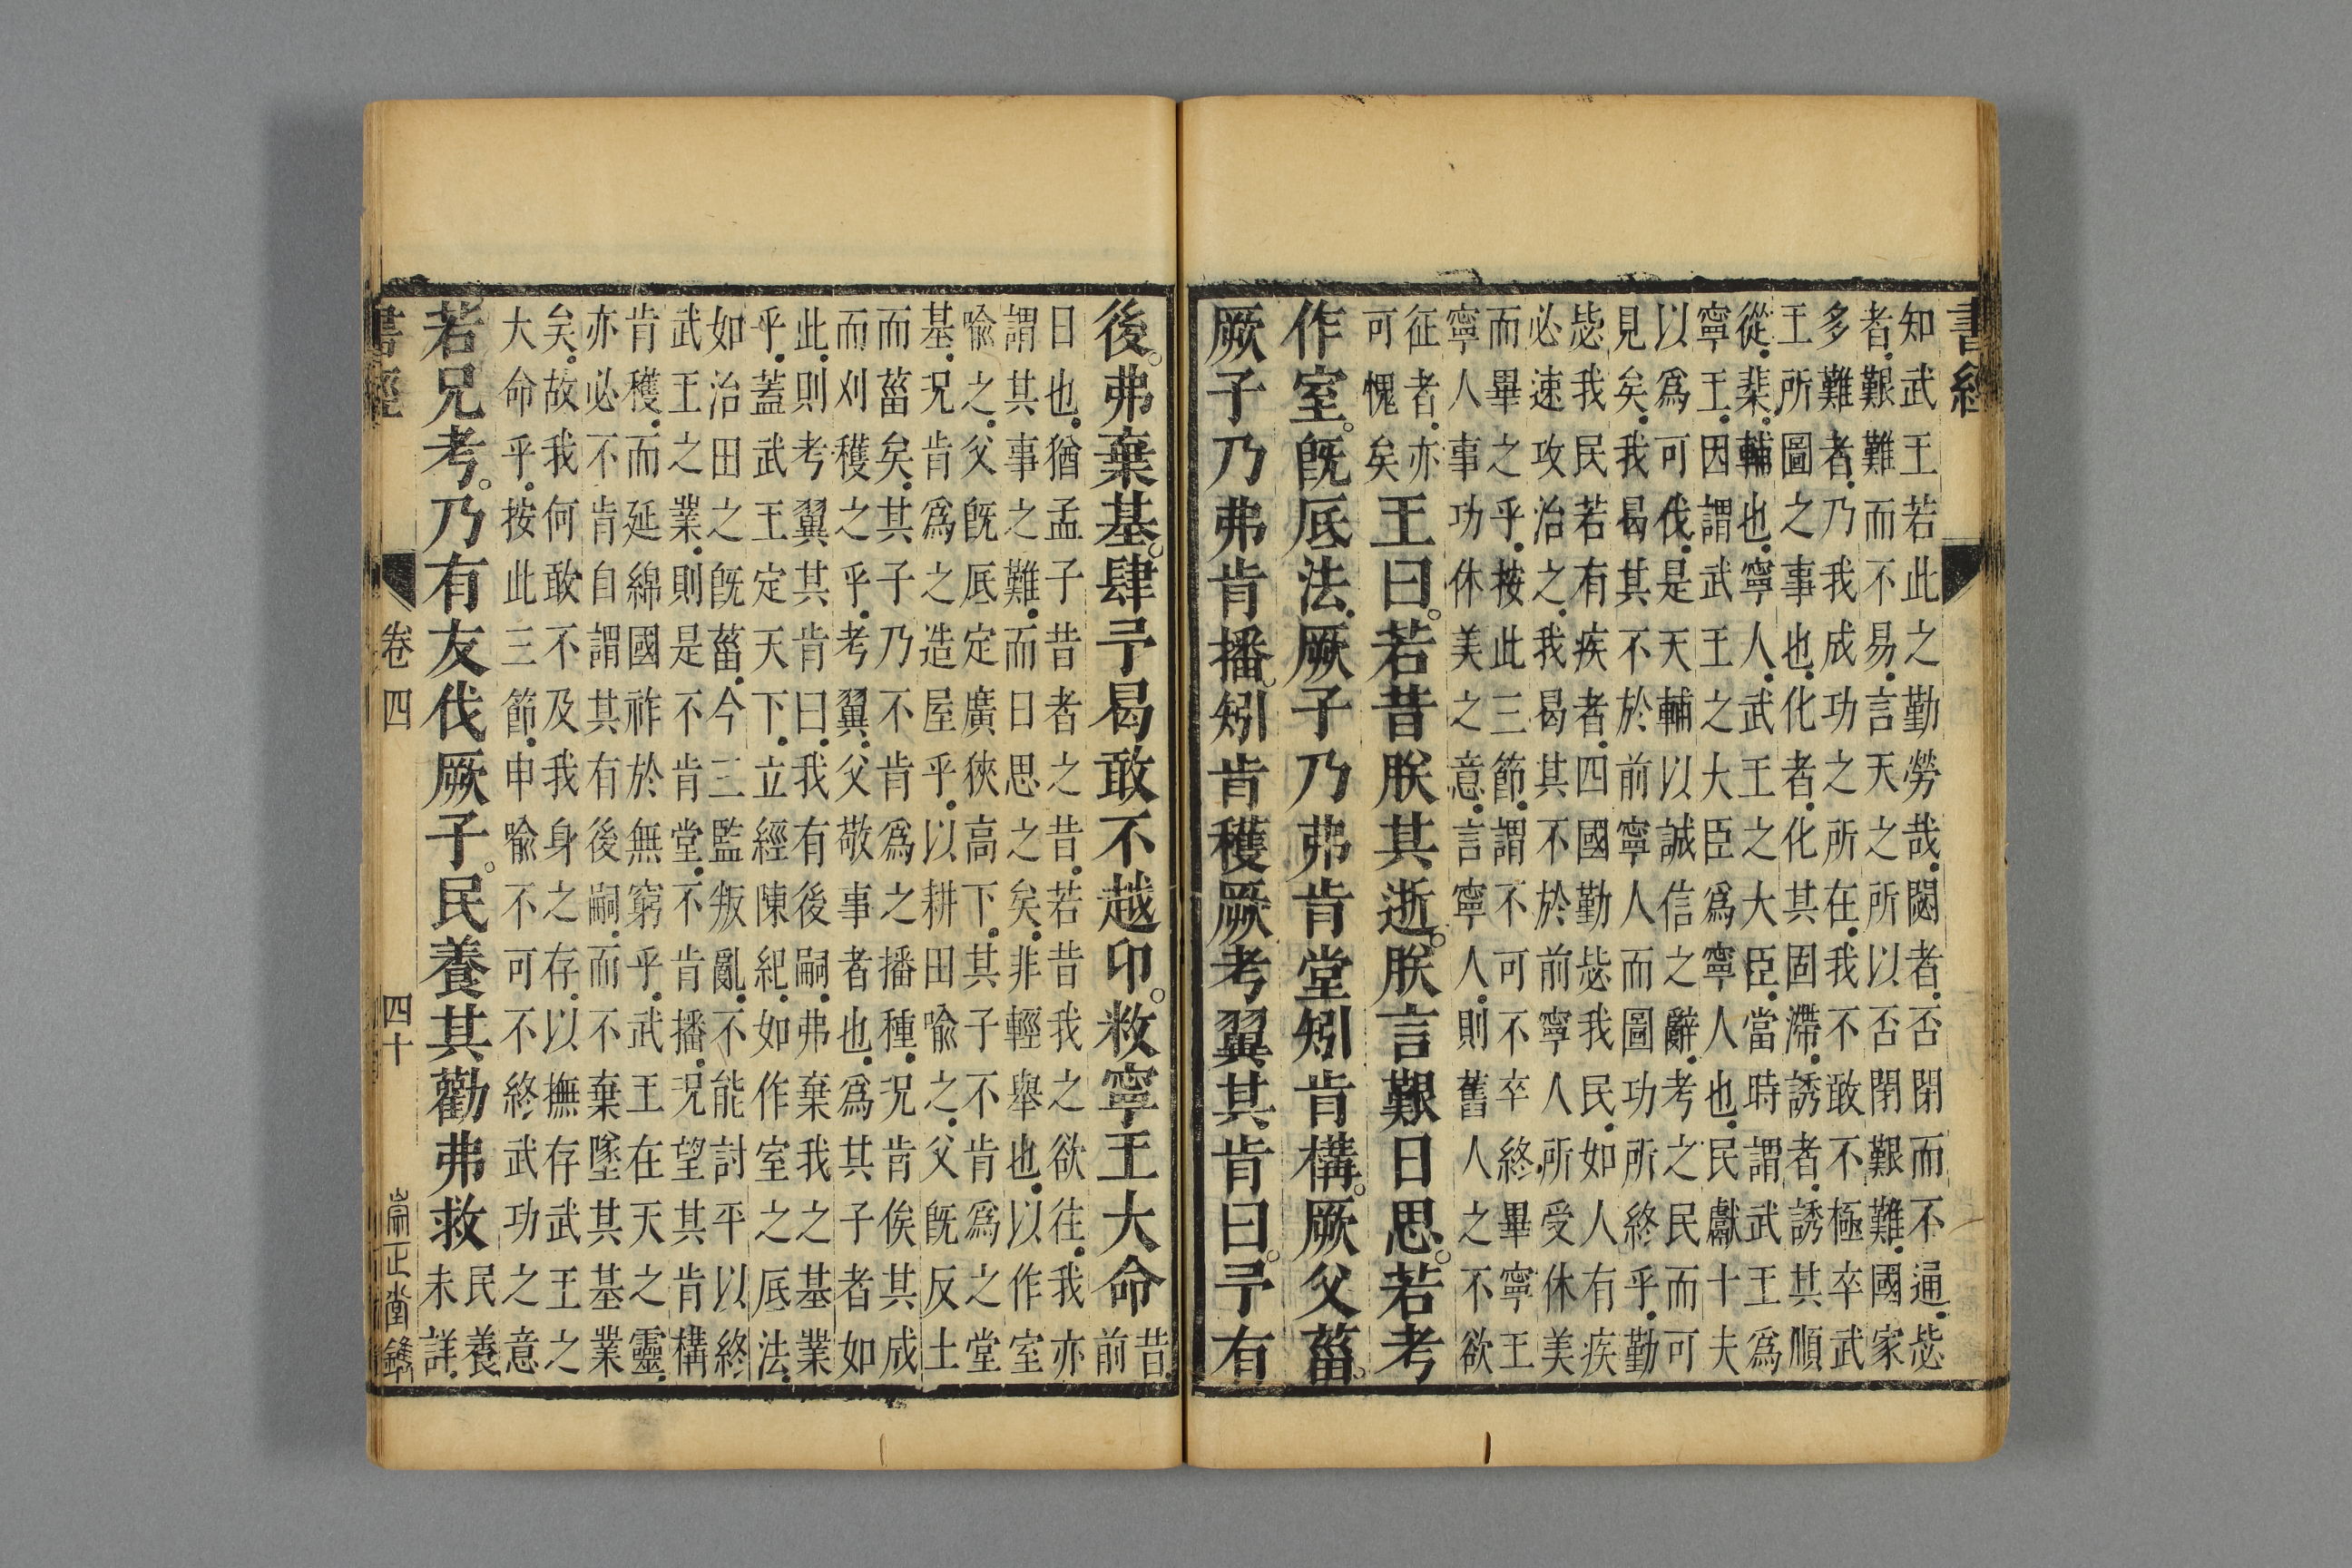 書經
知武王若此之勤勞哉閟者否閉而不通毖
者艱難而不易言天之所以否閉艱難國家
多難者乃我成功之所在我不敢不極卒武
王所圖之事也化者化其固滯誘者誘其順
從棐輔也寧人武王之大臣當時謂武王為
寧王因謂武王之大臣為寧人也民獻十夫
以為可伐是天輔以誠信之辭考之民而可
見矣我曷其不於前寧人而圖功所終乎勤
毖我民若有疾者四國勤毖我民如人有疾
必速攻治之我曷其不於前寧人所受休美
而畢之乎按此三節謂不可不卒終畢寧王
寧人事功休美之意言寧人則舊人之不欲
征者亦
可愧矣
王曰若昔朕其逝朕言艱日思若考
作室旣厎法厥子乃弗肯堂矧肯構厥父菑
厥子乃弗肯播矧肯穫厥考翼其肯曰予有
後弗棄基肆予曷敢不越卬敉寧王大命
昔
前
日也猶孟子昔者之昔若昔我之欲往我亦
謂其事之難而日思之矣非輕舉也以作室
喻之父旣厎定廣狹高下其子不肯為之堂
基況肯為之造屋乎以耕田喻之父旣反土
而菑矣其子乃不肯為之播種況肯俟其成
而刈穫之乎考翼父敬事者也為其子者如
此則考翼其肯曰我有後嗣弗棄我之基業
乎蓋武王定天下立經陳紀如作室之厎法
如治田之旣菑今三監叛亂不能討平以終
武王之業則是不肯堂不肯播況望其肯構
肯穫而延綿國祚於無窮乎武王在天之靈
亦必不肯自謂其有後嗣而不棄墜其基業
矣故我何敢不及我身之存以撫存武王之
大命乎按此三節申喻不可不終武功之意
若兄考乃有友伐厥子民養其勸弗救
民養
未詳
書經
卷四
四十
崇正堂鐫